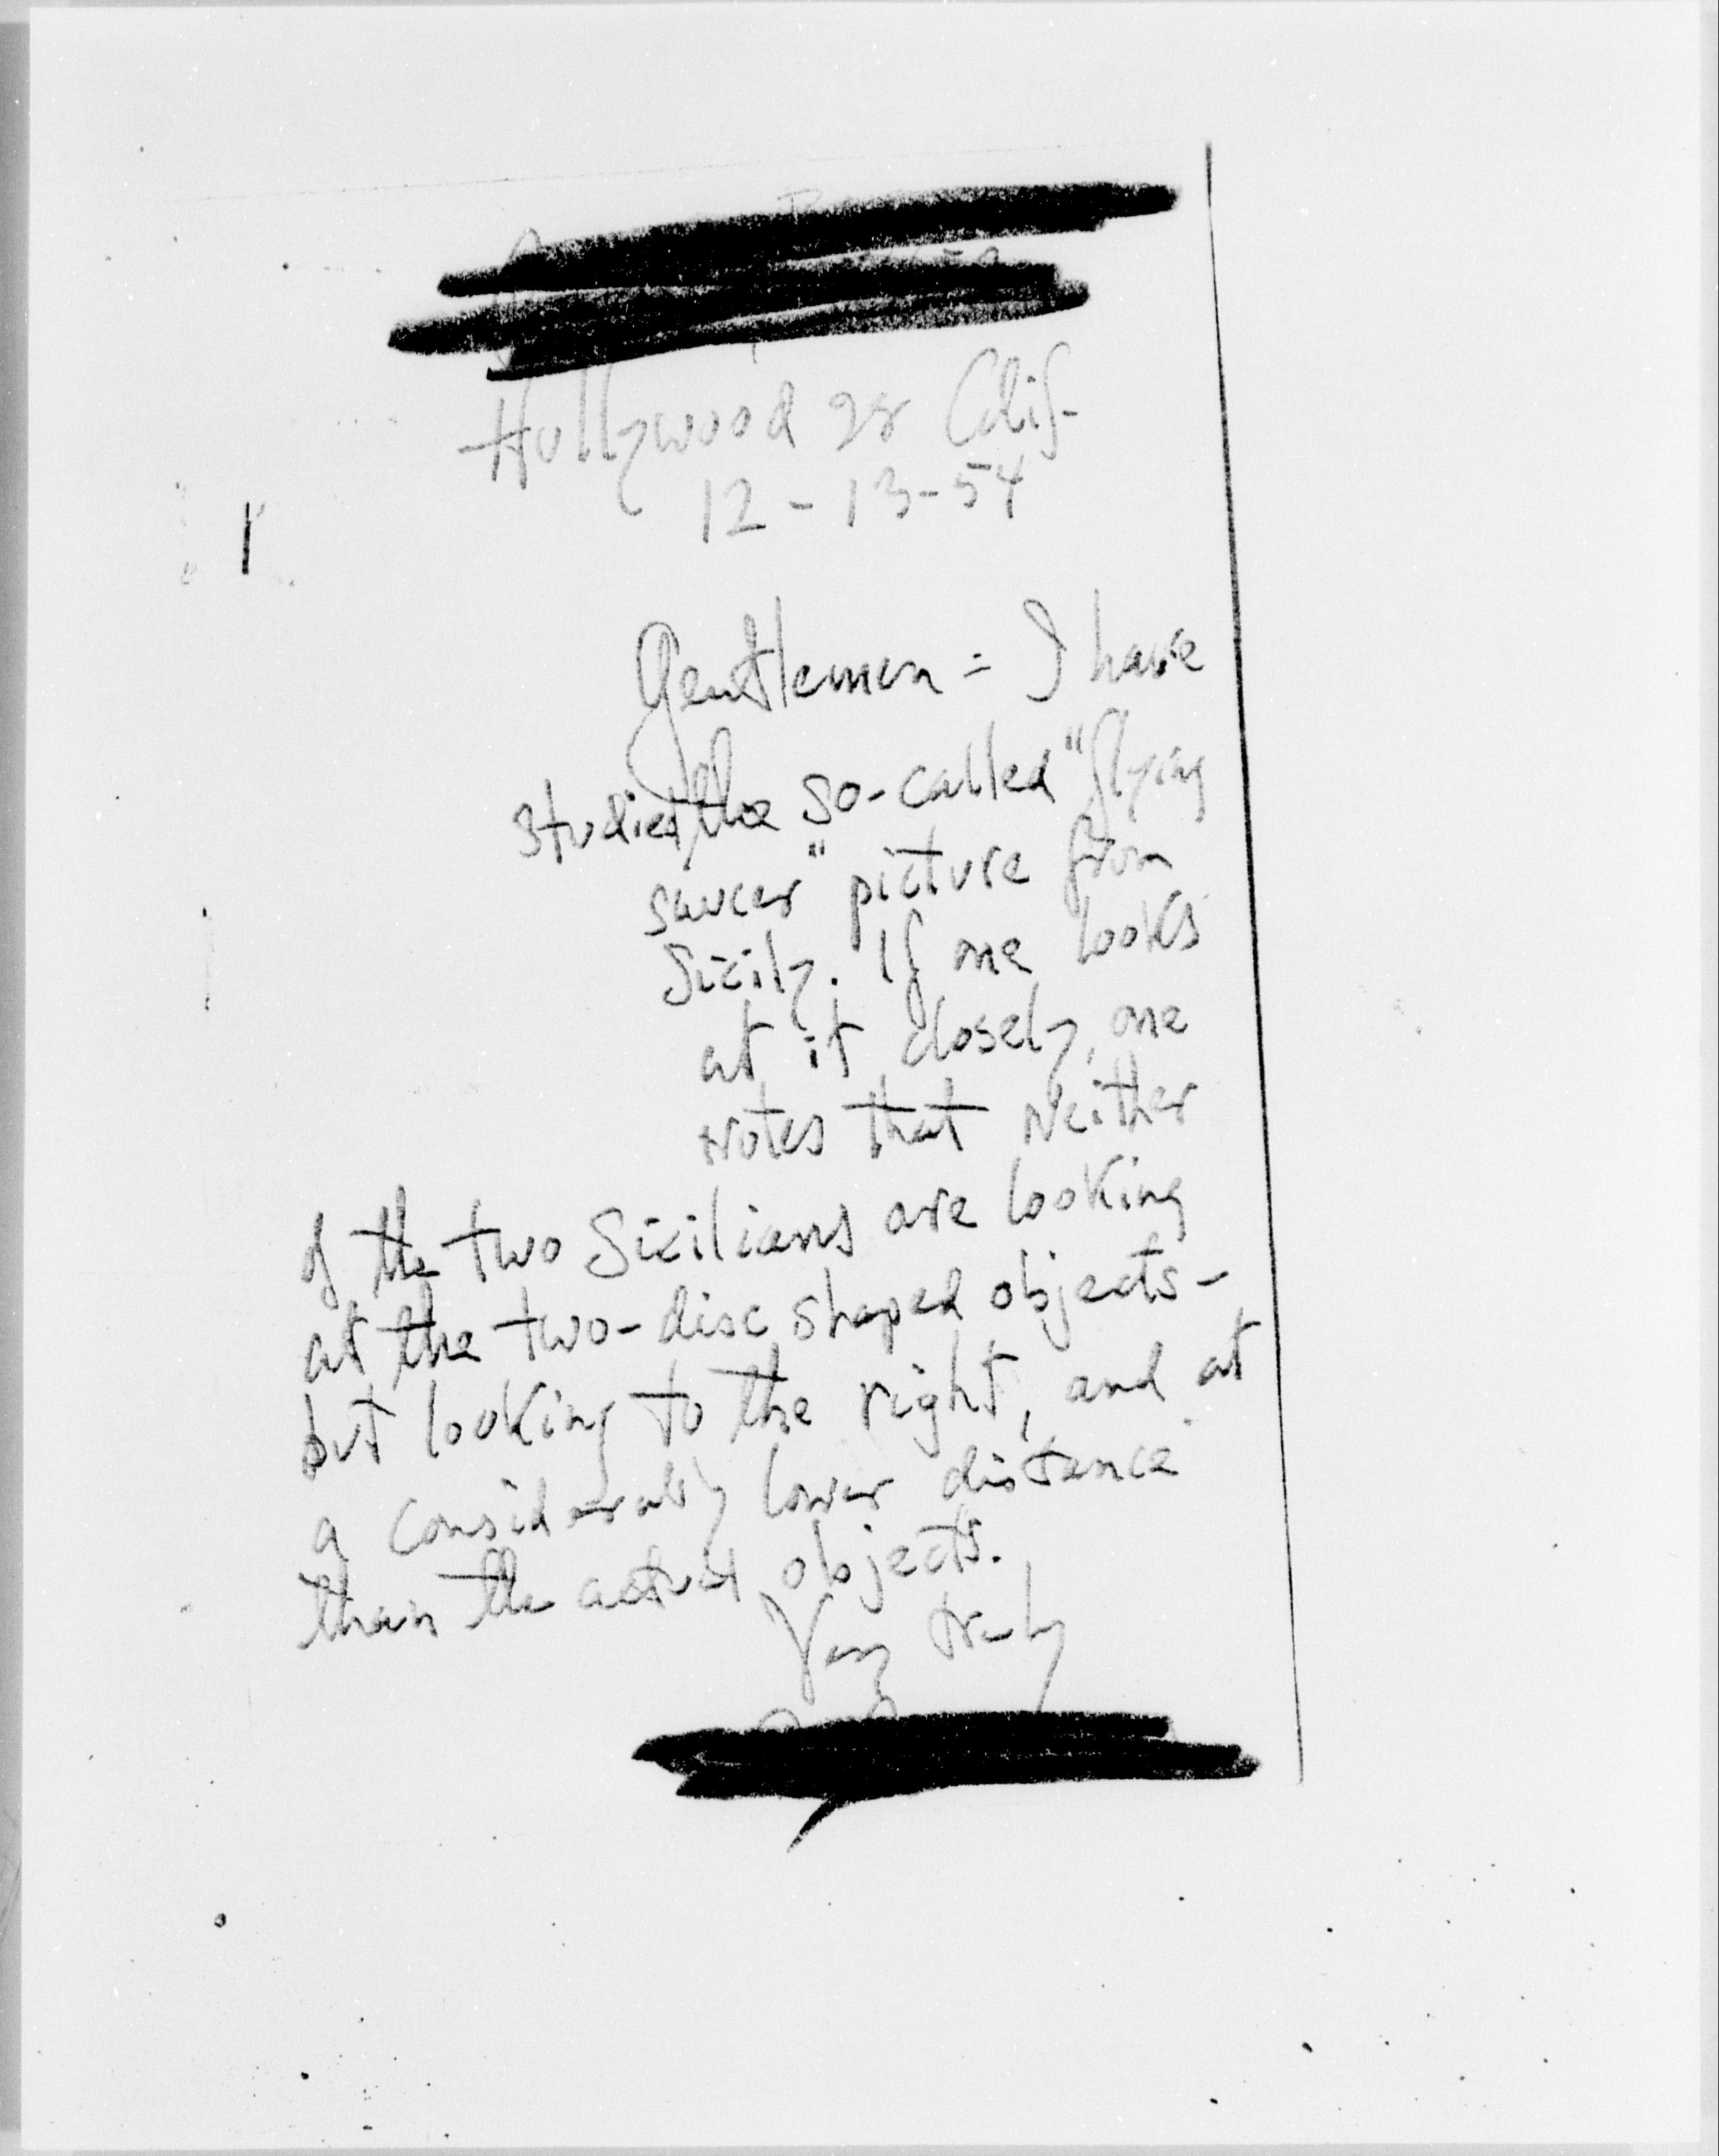 Hollywood 28 Calif-
12-13-54
Gentlemen = I have
studied the so-called "flying
saucer" picture from
Sicily. If one looks
at it closely, one
notes that neither
of the two Sicilians are looking
at the two-disc shaped objects-
but looking to the right, and at
a considerably lower distance
than the actual objects.
Very truly